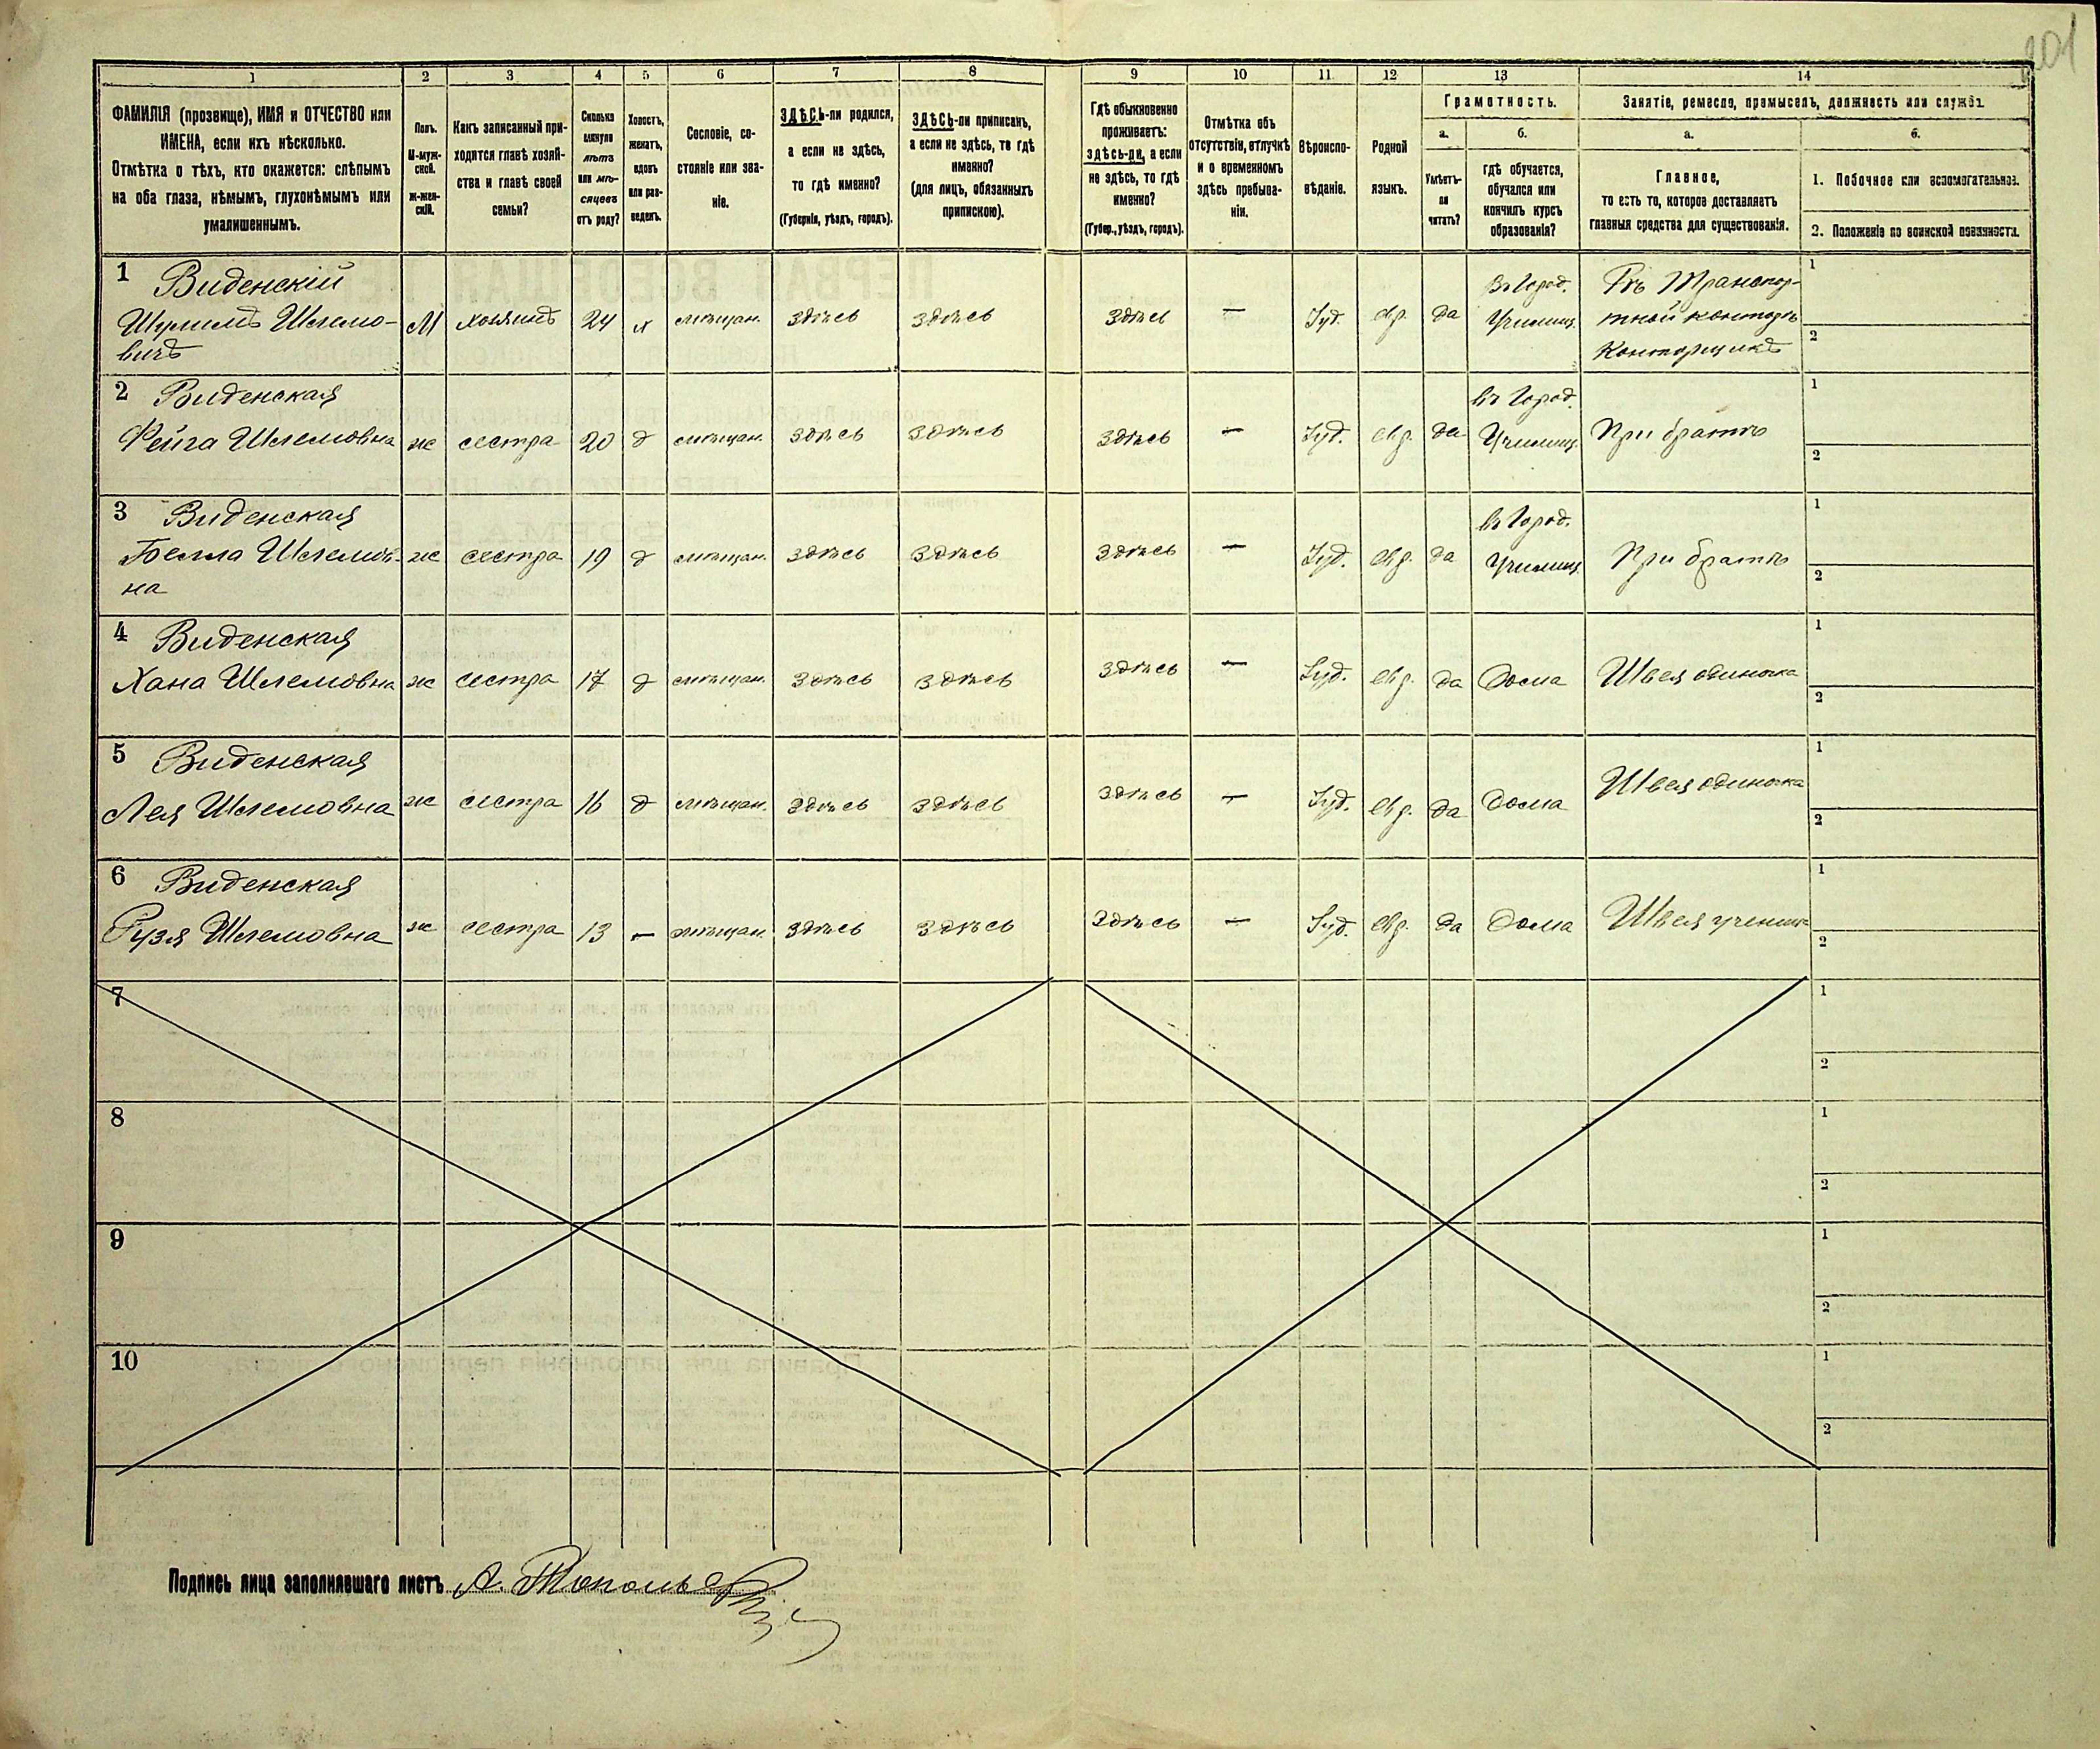 201
1 2 3 4 5 6 7 8 9 10 11 12 13 14
ФАМИЛІЯ (прозвище), ИМЯ и ОТЧЕСТВО или
ИМЕНА, если ихъ нѣсколько.
Отмѣтка о тѣхъ, кто окажется: слѣпымъ
на оба глаза, нѣмымъ, глухонѣмымъ или
умалишеннымъ.
Полъ.
М-муж-
ской.
ж-жен-
скій.
Какъ записанный при-
ходится главѣ хозяй-
ства и главѣ своей
семьи?
Сколько
минуло
лѣтъ
или мѣ-
сяцевъ
отъ роду?
Холостъ,
женатъ,
вдовъ
или раз-
веденъ.
Сословіе, со-
стояніе или зва-
ніе.
ЗДѢСЬ-ли родился,
а если не здѣсь,
то гдѣ именно?
(Губернія, уѣздъ, городъ).
ЗДѢСЬ-ли приписанъ,
а если не здѣсь, то гдѣ
именно?
(для лицъ, обязанныхъ
припискою).
Гдѣ обыкновенно
проживаетъ:
здѣсь-ли, а если
не здѣсь, то гдѣ
именно?
(Губер., уѣздъ, городъ).
Отмѣтка объ
отсутствіи, отлучкѣ
и о временномъ
здѣсь пребыва-
ніи.
Вѣроиспо-
вѣданіе.
Родной
языкъ.
Грамотность.
а. б.
Умѣетъ-
ли
читать?
гдѣ обучается,
обучался или
кончилъ курсъ
образованія?
Занятіе, ремесло, промыселъ, должность или служба.
а. б.
Главное,
то есть то, которое доставляетъ
главныя средства для существованія.
1. Побочное или вспомогательное.
2. Положеніе по воинской повинности.
1 Виденскій
Шулимъ Шлемо-
вичъ
М хозяинъ 24 х мѣщан. здѣсь здѣсь здѣсь — Іуд. евр. да
въ Город.
Училищ.
Въ Транспор-
тной конторѣ
Конторщикъ
1
2
2 Виденская
Фейга Шлемовна ж сестра 20 д мѣщан. здѣсь здѣсь здѣсь — Іуд. евр. да
въ Город.
Училищ.
При братѣ
1
2
3 Виденская
Бейла Шлемов-
на
ж сестра 19 д мѣщан. здѣсь здѣсь здѣсь — Іуд. евр. да
въ Город.
Училищ.
При братѣ
1
2
4 Виденская
Хана Шлемовна ж сестра 17 д мѣщан. здѣсь здѣсь здѣсь — Іуд. евр. да дома Швея одиночка
1
2
5 Виденская
Лея Шлемовна ж сестра 16 д мѣщан. здѣсь здѣсь здѣсь — Іуд. евр. да дома Швея одиночка
1
2
6 Виденская
Рузя Шлемовна ж сестра 13 — мѣщан. здѣсь здѣсь здѣсь — Іуд. евр. да дома Швея учениц
1
2
7
1
2
8
1
2
9
1
2
10
1
2
Подпись лица заполнявшаго листъ А.